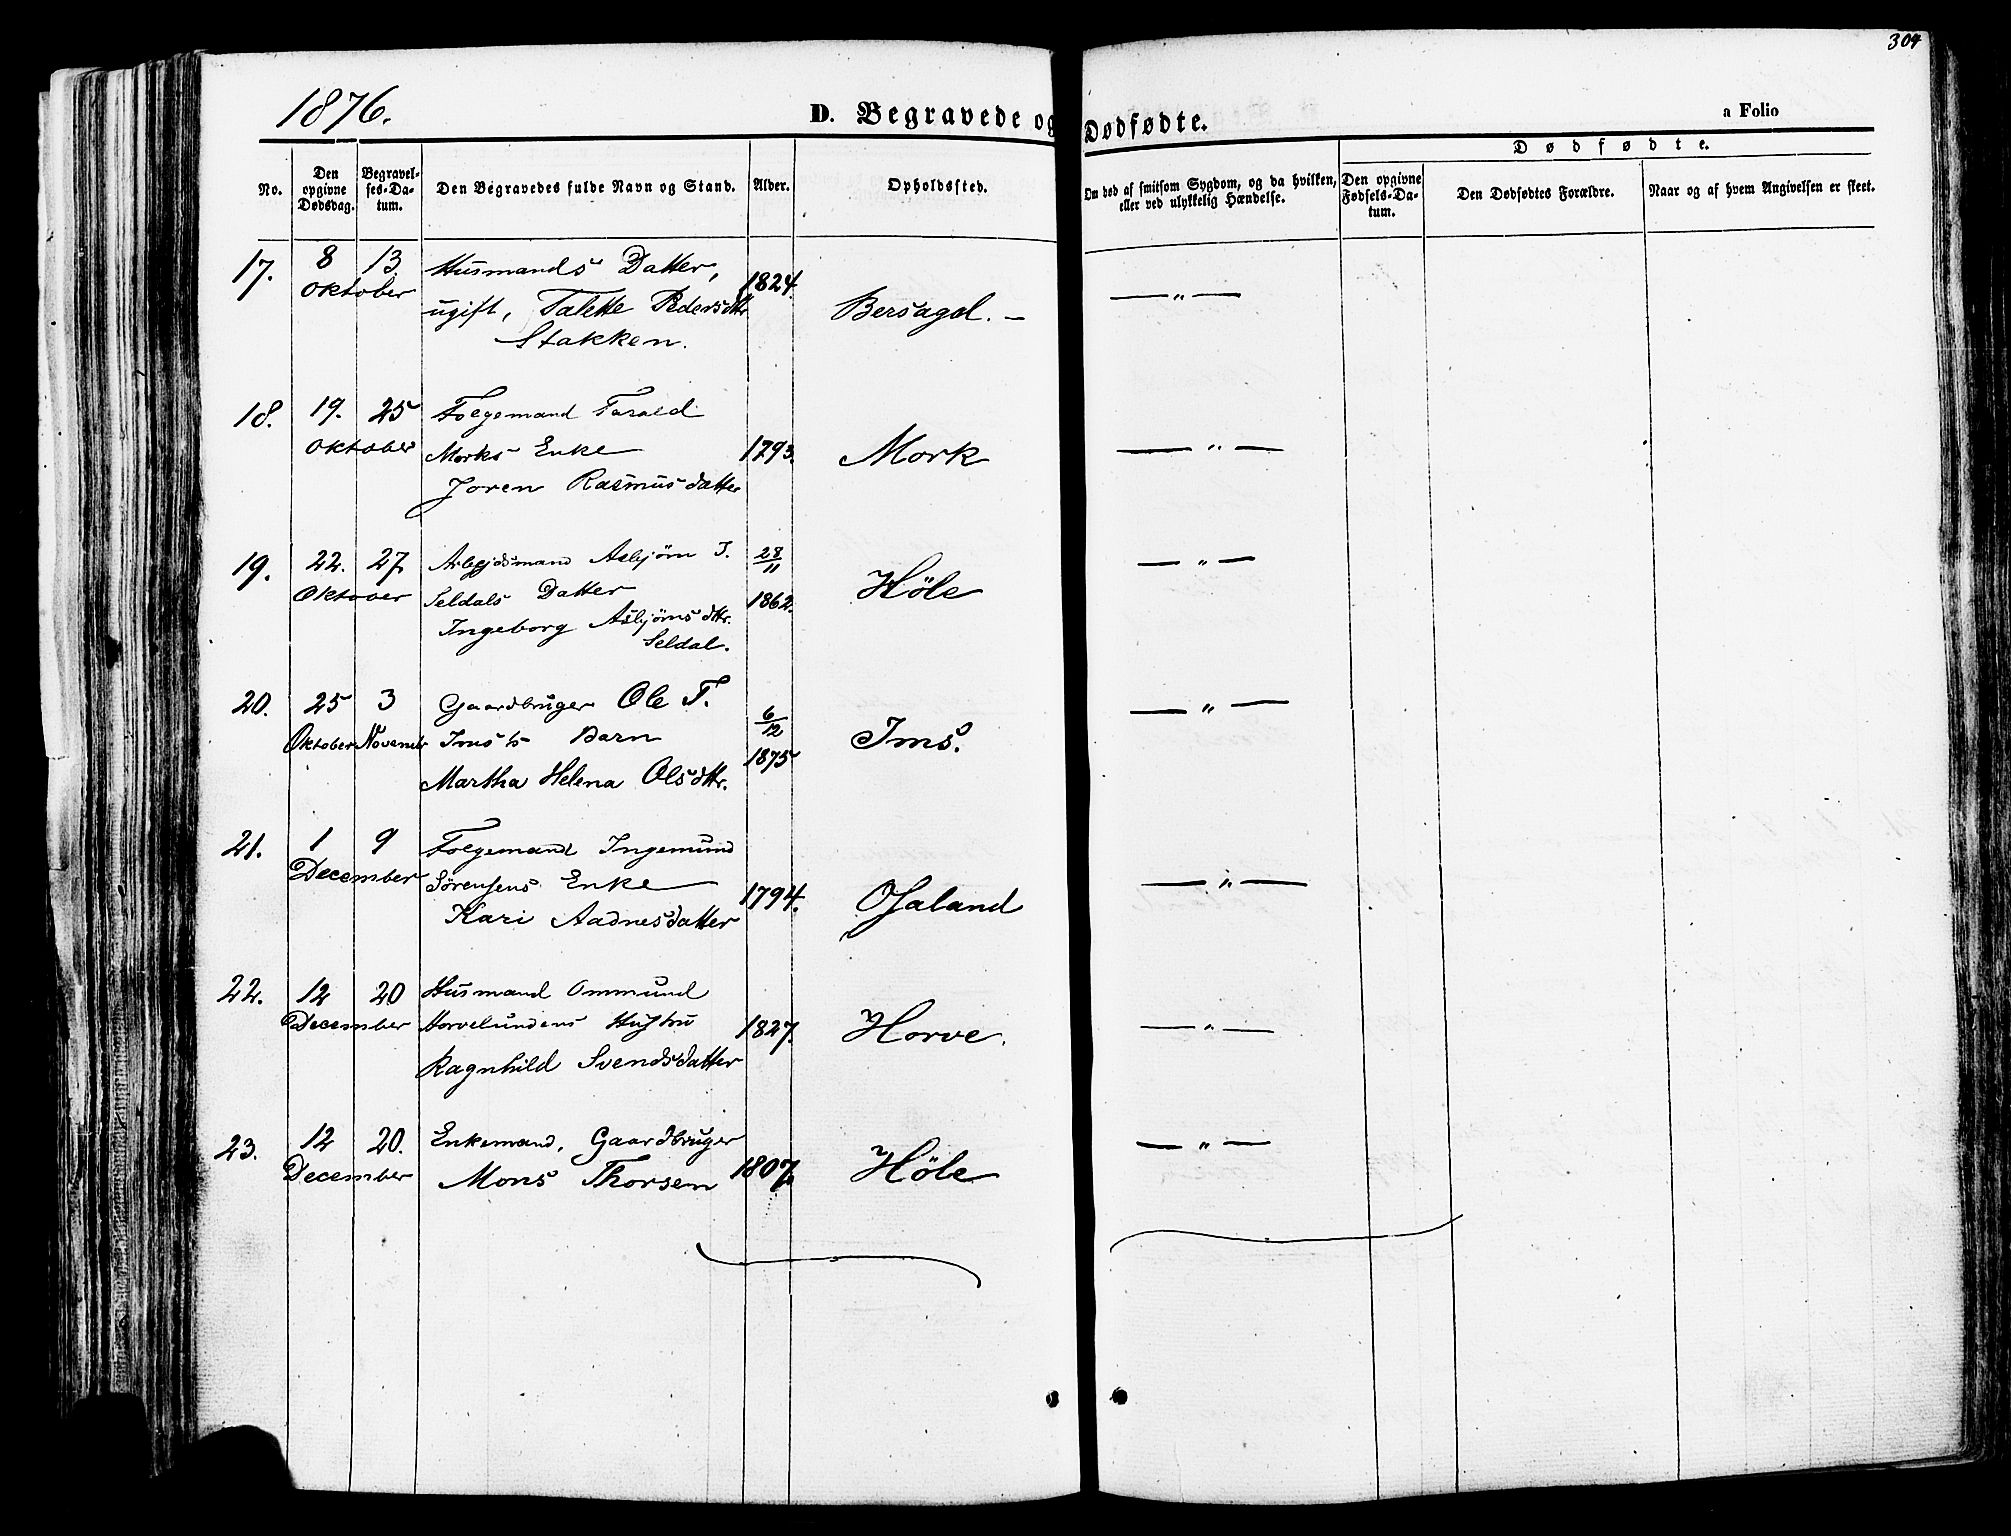 304
1876.
D. Begravede og Dødfødte.
a Folio
No.
Den opgivne Dødsdag.
Begravelses-Datum.
Den Begravedes fulde Navn og Stand.
Alder.
Opholdssted.
Om død af smitsom Sygdom, og da hvilken, eller ved ulykkelig Hændelse.
Dødfødte.
Den opgivne Fødsels-Datum.
Den Dødfødtes Forældre.
Naar og af hvem Angivelsen er skeet.
17. 8 13. Husmands Datter, 1824.
Oktober ugift, Talette Pedersdtr Bersagel. — — " —
Stakken.
18. 19. 25 Folgemand Tarald
Oktober Morks Enke 1793. Mork — " —
Joren Rasmusdatter
19. 22. 27. Arbejdsmand Asbjörn T. 28/11 — " —
Oktober Seldals Datter 1862. Höle
Ingeborg Asbjörnsdtr.
Seldal.
20. 25 3 Gaardbruger Ole T. 6/12 — " —
Oktober November Ims's Barn 1875 Ims.
Martha Helena Olsdtr.
21. 1 9 Folgemand Ingemund
December Sörensens Enke 1794. Osaland — " —
Kari Aadnesdatter
22. 12 20 Husmand Ommund
December Horvelundens Hustru 1827. Horve. — " —
Ragnhild Svendsdatter
23. 12 20. Enkemand, Gaardbruger — " —
December Mons Thorsen 1807. Höle